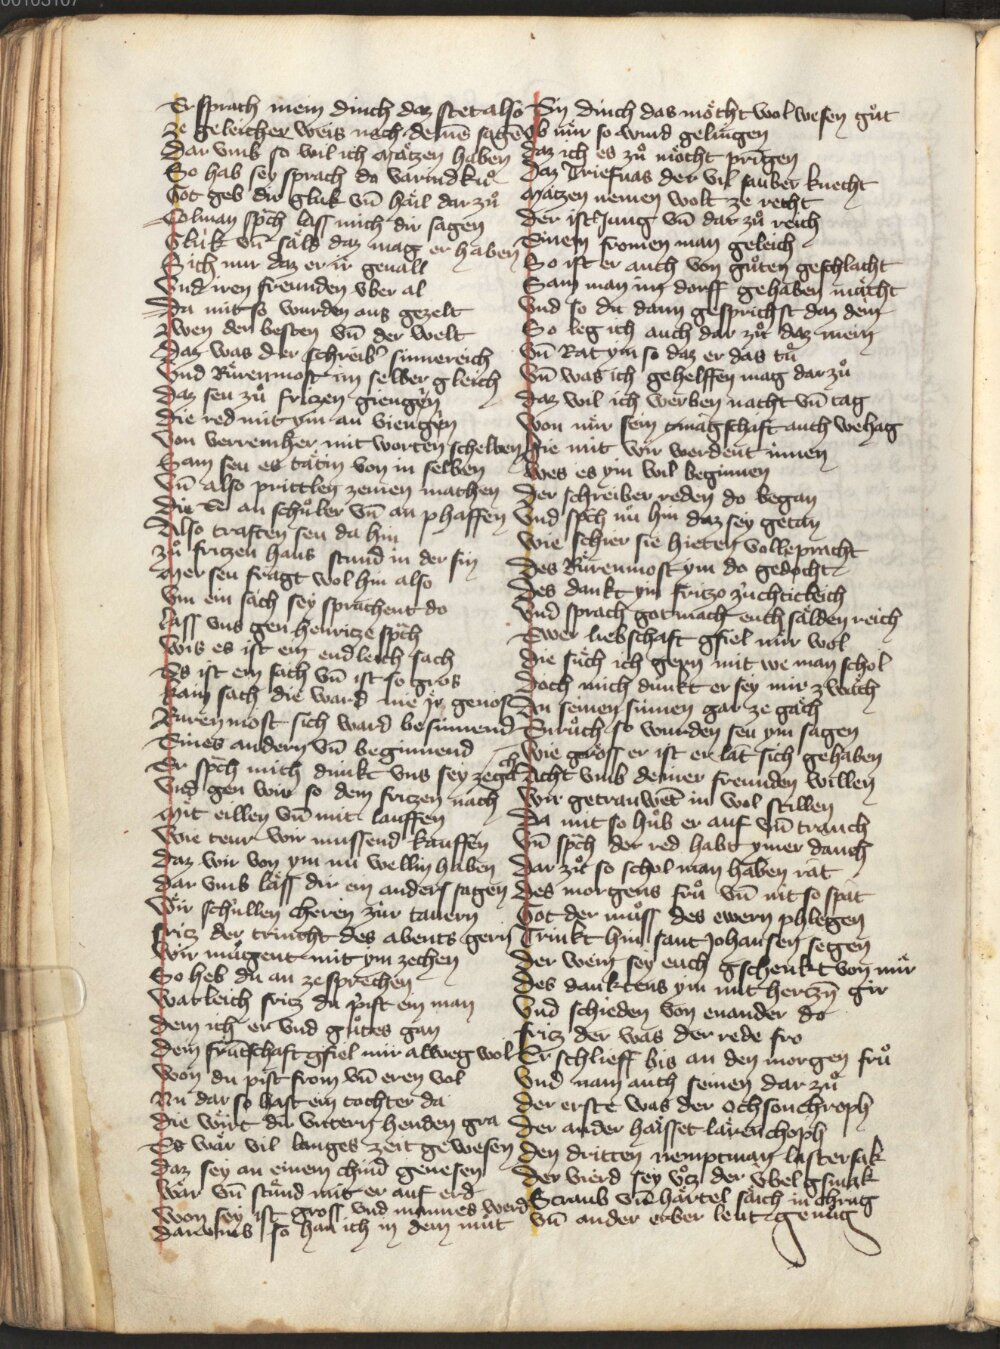 00105107
Er sprach mein dinch daz stet also
Ze geleicher weis nach desm̄ sagē
Dar vmb so wil ich Mätzen haben
So hab sey sprach do varindkuͦ
Got geb dir gluk vn̄ häil dar zuͦ
Colman sp̄ch lass mich dir sagen
Glük vn̄ säld daz mag er haben
Sich nur daz er ir geuall
Vnd iren freunden vber al
Da mit so wurden aus gezelt
Zwen der besten vn̄ der welt
Daz was der schreib̄ sinnereich
Vnd Rüerenmost im selber gleich
Daz seu zuͦ fritzen giengen
Die red mit ym an viengen
Von verrem her mit worten schelben
Sam seu es tätin von in selben
Vn̄ also prittlen zemen machen
Die E an schuͦler vn̄ an phaffen
Also traften seu da hin
Zuͦ fritzen haus stund in der sin
Mer seu fragt wol hin also
Vm ein sach sey sprachent do
Lass vns gen henritze sp̄ch
Wis es ist ein endleich sach
Es ist ein sach vn̄ ist so gros
Kain sach die ward nie ir genoss
Rürenmost sich ward besinnend
Eines andern vn̄ beginnend
Er sp̄ch mich dunkt vns sey ze gach
Vnd gen wir so dem fritzen nach
Mit eillen vn̄ mit lauffen
Wie teur wir mussend kauffen
Daz wir von ym nu wellin haben
Dar vmb läss dir ein anders sagen
Wir schüllen cheren zür tauern
Fritz der trincht des abents gern
Wir mugent mit ym zechen
So heb du an ze sprechen
Warleich fritz du pist ein man
Dem ich er vnd guͦtes gan
Dein frütschaft gfiel mir alweg wol
Won du pist from vn̄ eren vol
Nu dar so hast ein tochter da
Die wirt dir vntern henden gra
Es wär vil langes zeit gewesen
Daz sey an einem chind genesen
Wär vn̄ stünd mit er auf erd
Won sey ist gross vnd mannes werd
Dar vmb so han ich in dem mut
Ein dinch das möcht wol wesen guͦt
Ob mir so wurd gelungen
Daz ich es zuͦ möcht pringen
Daz Triefnas der vil sauber knecht
Mätzen nemen wolt ze recht
Der ist Jung vn̄ dar zuͦ reich
Einem fromen man geleich
So ist er auch von guͦten geschlacht
Sam man im dorff gehaben macht
Vnd so du dann gesprichst daz dein
So leg ich auch dar zuͦ daz mein
Vn̄ Rat ym so daz er das tuͦ
Vn̄ was ich gehelffen mag dar zuͦ
Daz wil ich werben nacht vn̄ tag
Won mir sein magschaft auch wehag
Hie mit wir werdent innen
Wes es ym wil beginnen
Der schreiber reden do began
Vnd sp̄ch nu hin daz sey getan
Wie schier sie hieten vollepracht
Des Rürenmost ym do gedocht
Des dankt ym fritzo züchticleich
Vnd sprach got mach euch sälden reich
Ewer liebschaft gfiel mir wol
Die suͦch ich gern mit we man schol
Doch mich dunkt er sey mir zwäch
In seinen sinnen gar ze gäch
Entruͦch so wurden seu ym sagen
Wie gröss er ist er lat sich gehaben
Acht vmb deiner freunden willen
Wir getrauwet in wol stillen
Da mit so huͦb er auf vn̄ tranch
Vn̄ sp̄ch der red habt ymer danch
Dar zuͦ so schol man haben rat
Des morgens fruͦ vn̄ nit so spat
Got der muͦss des ewern phlegen
Trinkt hin sant Johansen segen
Der wein sey euch gschenkt von mir
Des danktens ym mit hertzen gir
Vnd schieden von enander do
Fritz der was der rede fro
Er schlieff bis an den morgen fruͦ
Vnd nam auch seinen dar zuͦ
Der erste was der Ochsonchroph
Der ander haisset lärenchoph
Den dritten nempt man lastersak
Der vierd sey vͦtz der vbel gsmak
Straub vn̄ härtel säich in chrug
Vn̄ ander erber leut genuͦg